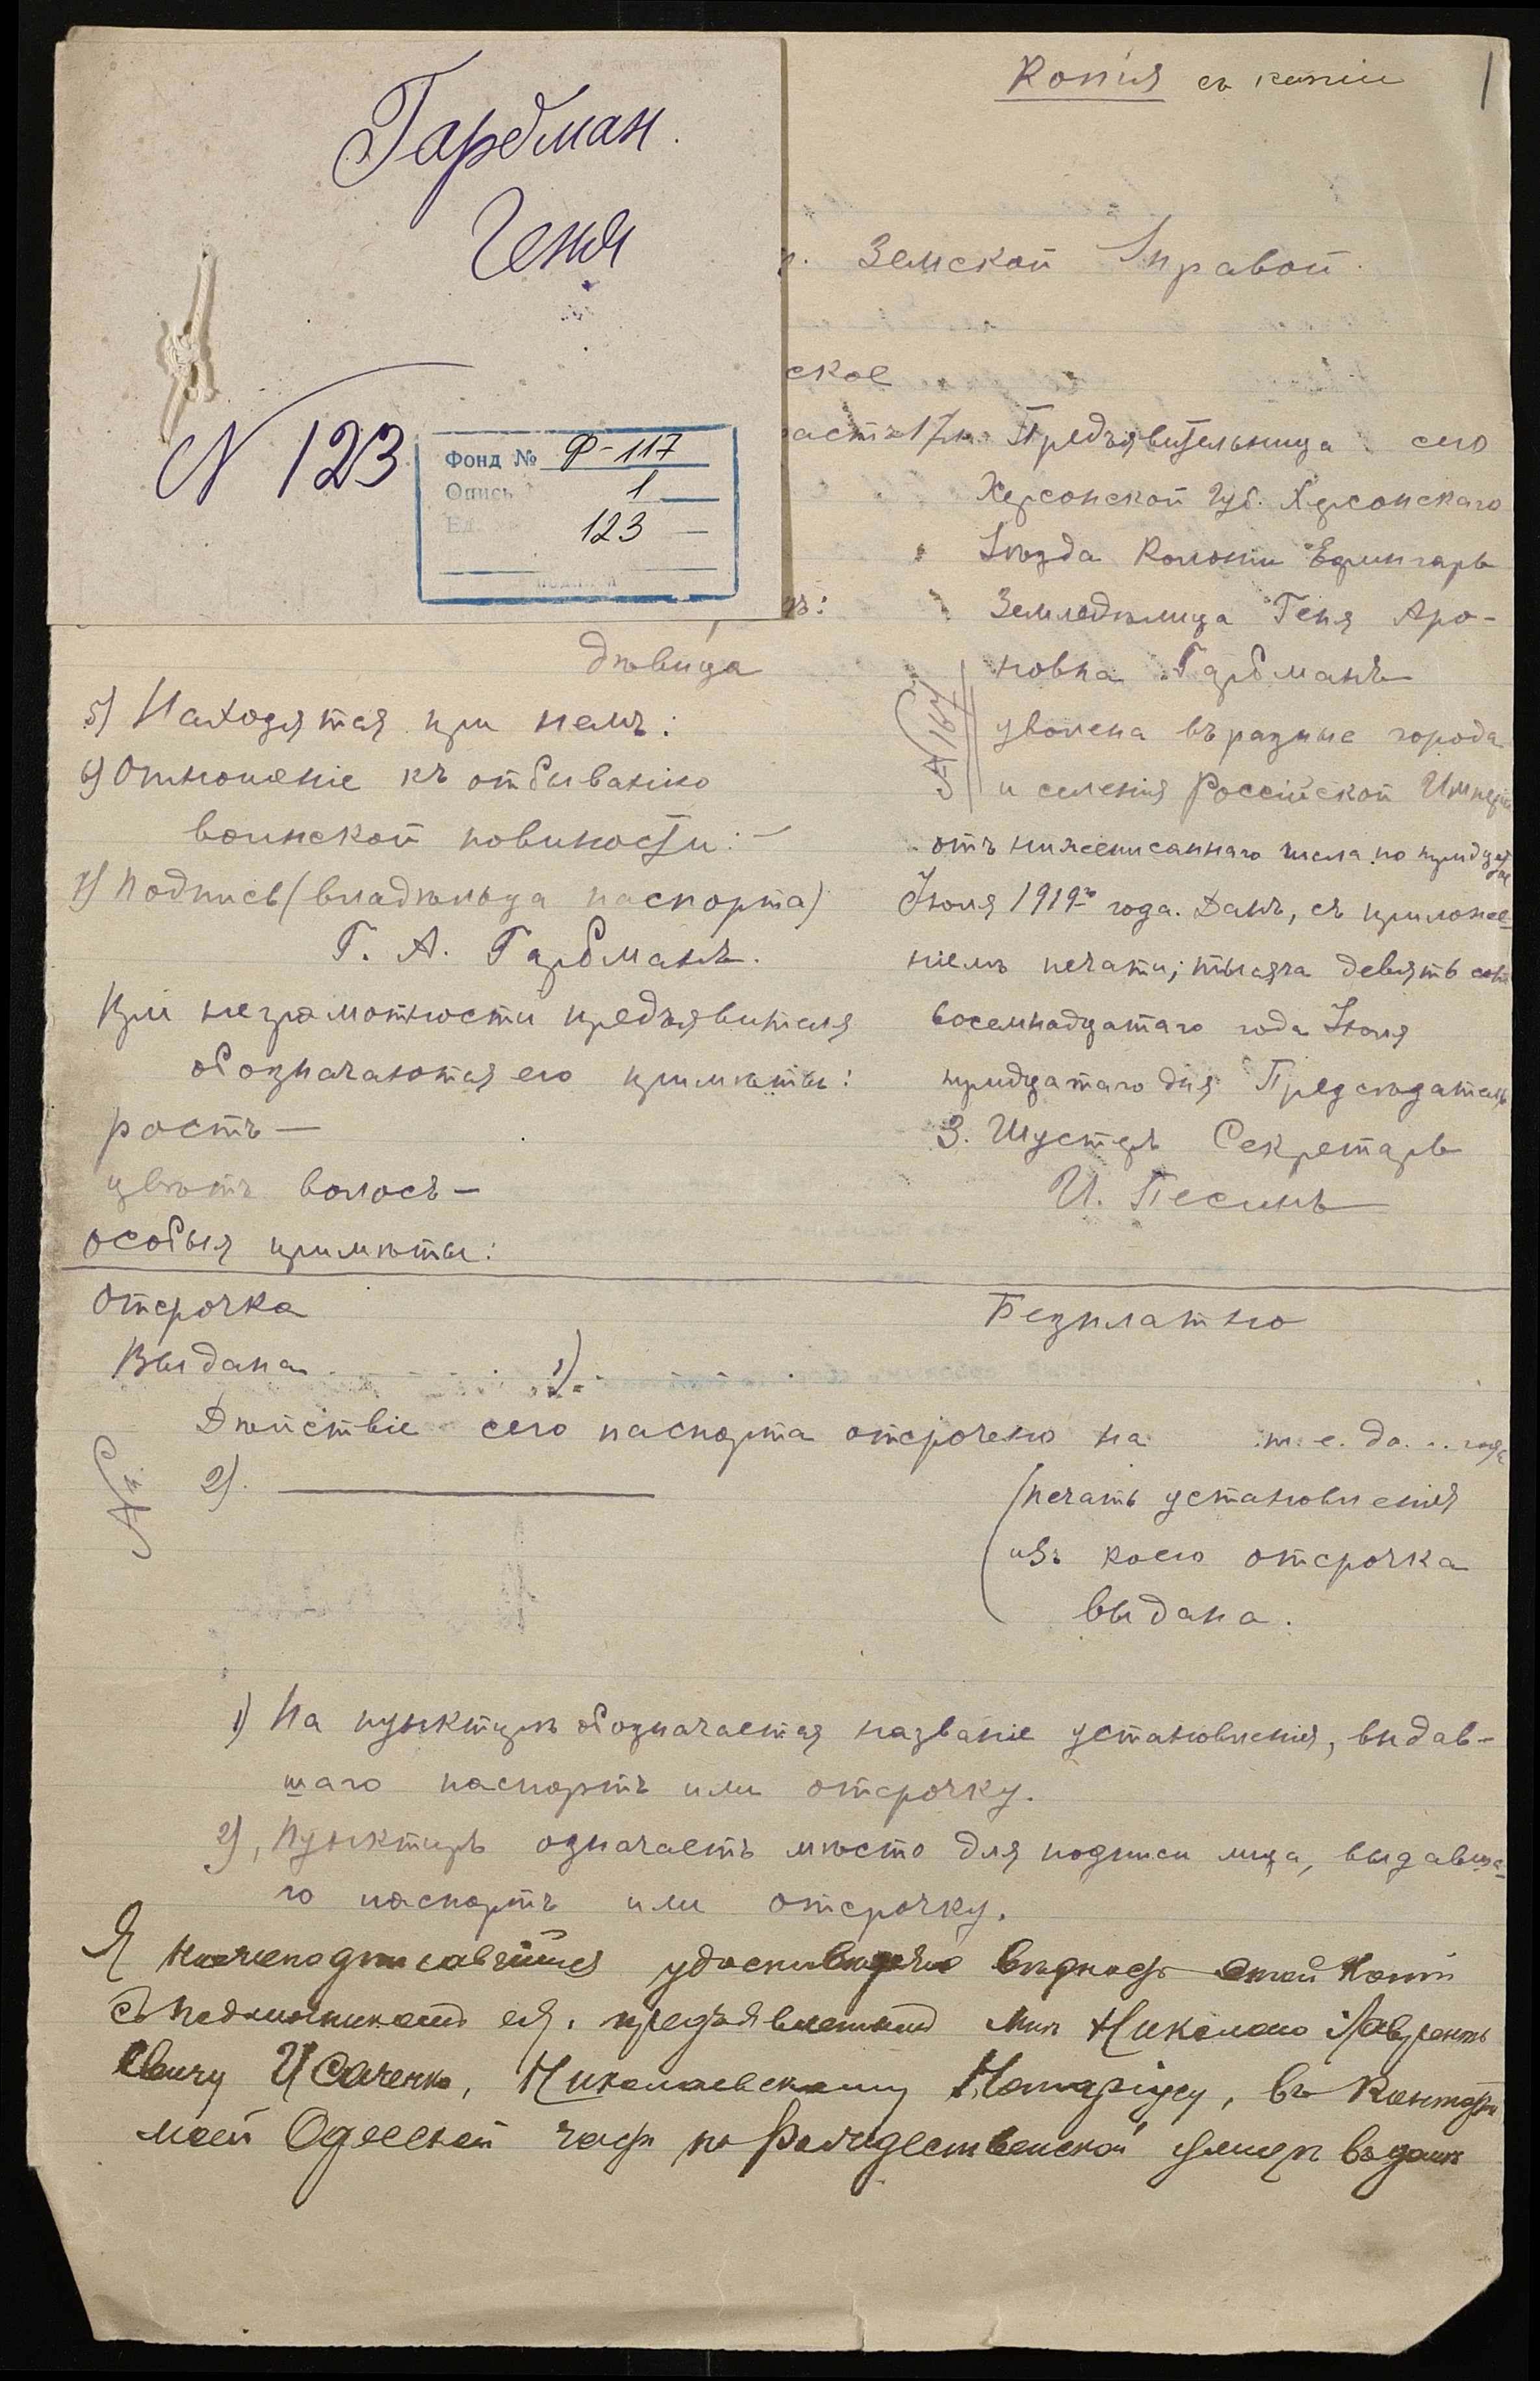 Гарбман.
Геня
N 123
Фонд № Ф-117
Опись 1
Ед. хр. 123
Копія съ копіи
1
Земской Управой.
ское
растъ 17 л. Предъявительница сего
Херсонской Губ. Херсонскаго
Уѣзда Колоніи Ефингарь
Земледѣлица Геня Аро-
новна Гарбманъ
№ 167
уволена въ разные города
и селенія Россійской Имперіи
отъ нижеписаннаго числа по тридцатое
Іюля 1919го года. Данъ, съ приложе-
ніемъ печати; тысяча девятьсотъ
восемнадцатаго года Іюля
тридцатаго дня Предсѣдатель
З. Шустеръ Секретарь
И. Песинъ
дѣвица
5) Находятся при немъ:
6) Отношеніе къ отбыванію
воинской повиности: —
7) Подпись (владѣльца паспорта)
Г. А. Гарбманъ.
При неграмотности предъявителя
обозначаются его примѣты:
ростъ —
цвѣтъ волосъ —
особыя примѣты:
Отсрочка
Безплатно
Выдана 1)
Дѣйствіе сего паспорта отсрочено на т. е. до . . года
№
2).
(печать установленія
изъ коего отсрочка
выдана.
1) На пунктирѣ обозначается названіе установленія, выдав-
шаго паспортъ или отсрочку.
2), Пунктиръ означаетъ мѣсто для подписи лица, выдавша-
го паспортъ или отсрочку.
Я нижеподписавшійся удостовѣряю вѣрность этой копіи
съ подлинникомъ ея, предъявленнымъ мнѣ Николаю Лаврентъ
евичу Исаченко, Николаевскому Нотаріусу, въ конторѣ
моей Одесской части по Рождественской улицѣ въ домѣ